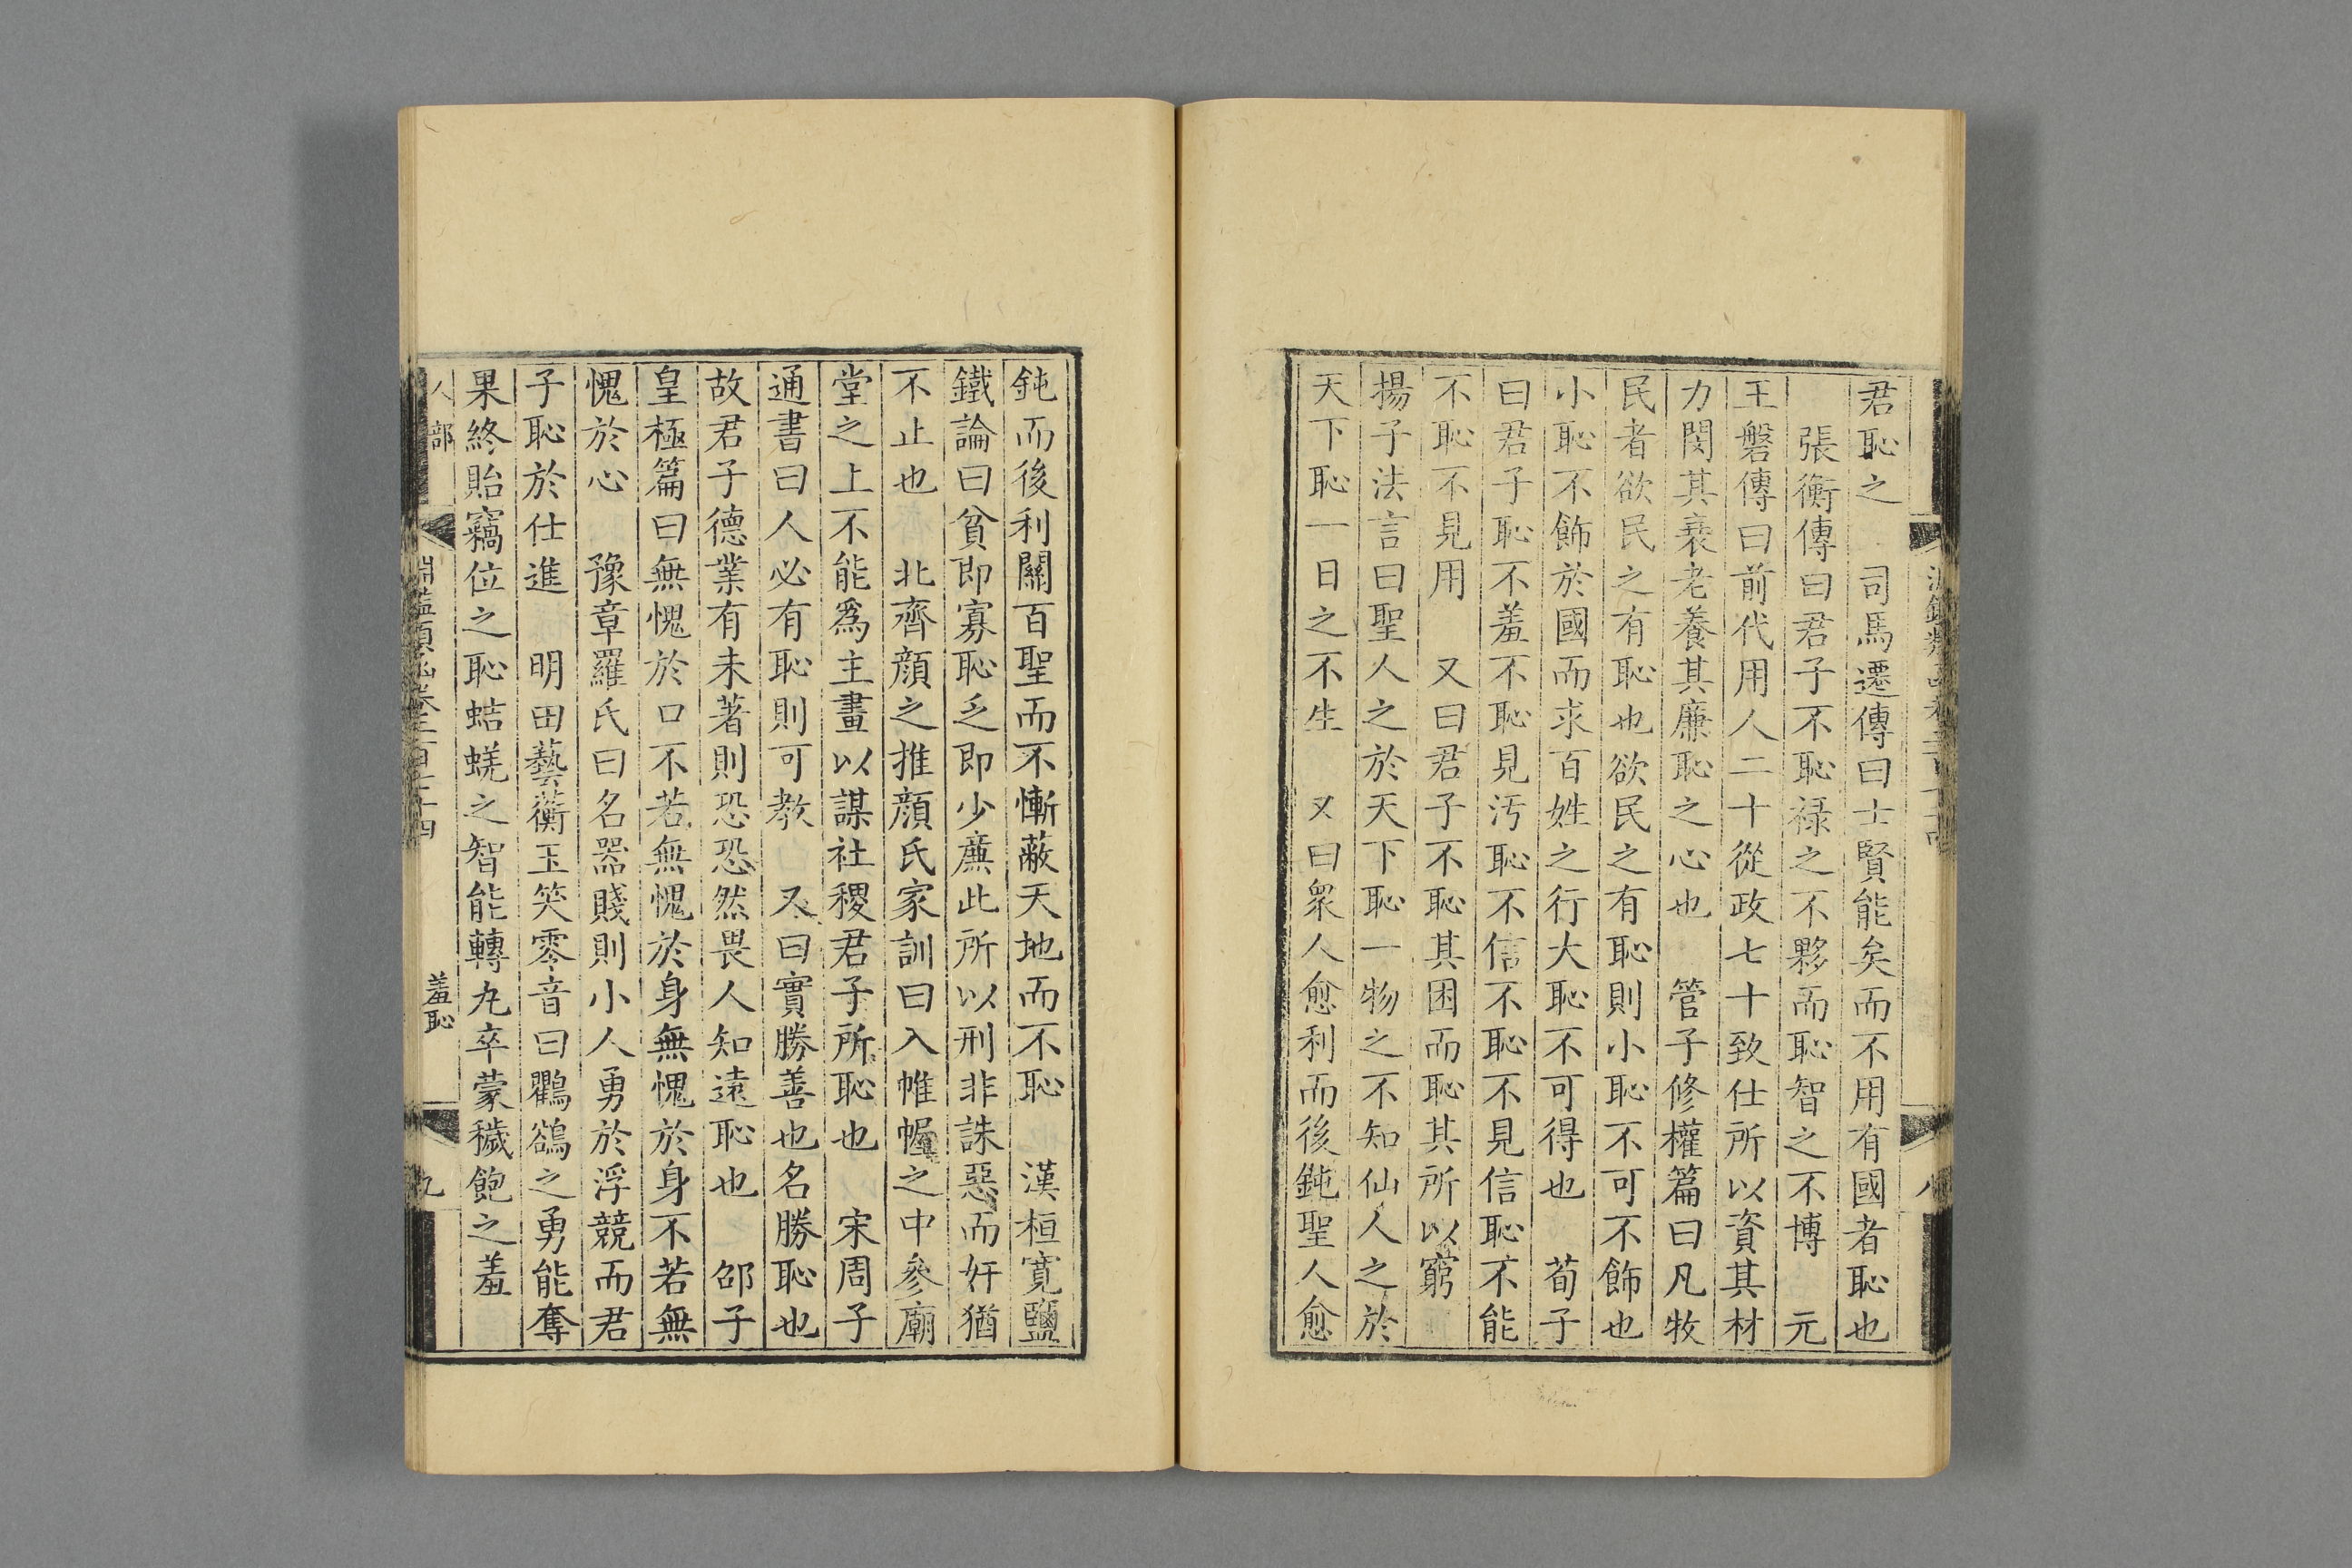 君恥之　司馬遷傳曰士賢能矣而不用有國者恥也
張衡傳曰君子不恥禄之不夥而恥智之不博　元
王磐傳曰前代用人二十從政七十致仕所以資其材
力閔其衰老養其廉恥之心也　管子修權篇曰凡牧
民者欲民之有恥也欲民之有恥則小恥不可不飾也
小恥不飾於國而求百姓之行大恥不可得也　荀子
曰君子恥不羞不恥見汚恥不信不恥不見信恥不能
不恥不見用　又曰君子不恥其困而恥其所以窮
揚子法言曰聖人之於天下恥一物之不知仙人之於
天下恥一日之不生　又曰衆人愈利而後鈍聖人愈
鈍而後利關百聖而不慚蔽天地而不恥　漢桓寬鹽
鐵論曰貧即寡恥乏即少廉此所以刑非誅惡而奸猶
不止也　北齊顔之推顔氏家訓曰入帷幄之中參廟
堂之上不能爲主畫以謀社稷君子所恥也　宋周子
通書曰人必有恥則可教　又曰實勝善也名勝恥也
故君子德業有未著則恐恐然畏人知遠恥也　邵子
皇極篇曰無愧於口不若無愧於身無愧於身不若無
愧於心　豫章羅氏曰名器賤則小人勇於浮競而君
子恥於仕進　明田藝蘅玉笑零音曰鸜鵒之勇能奪
果終貽竊位之恥蛣蜣之智能轉丸卒蒙穢飽之羞
人部
淵鑑類函卷三百十四
羞恥
九